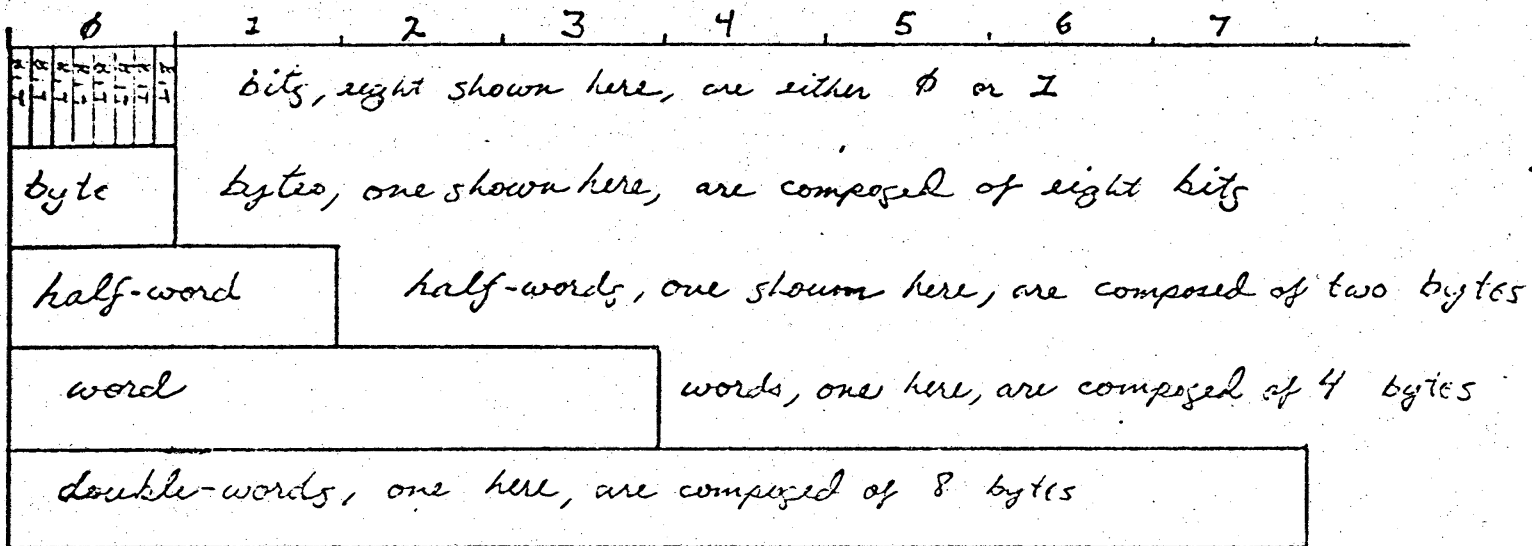 0 1 2 3 4 5 6 7
BIT BIT BIT BIT BIT BIT BIT BIT
bits, eight shown here, are either 0 or 1
byte bytes, one shown here, are composed of eight bits
half-word half-words, one shown here, are composed of two bytes
word words, one here, are composed of 4 bytes
double-words, one here, are composed of 8 bytes